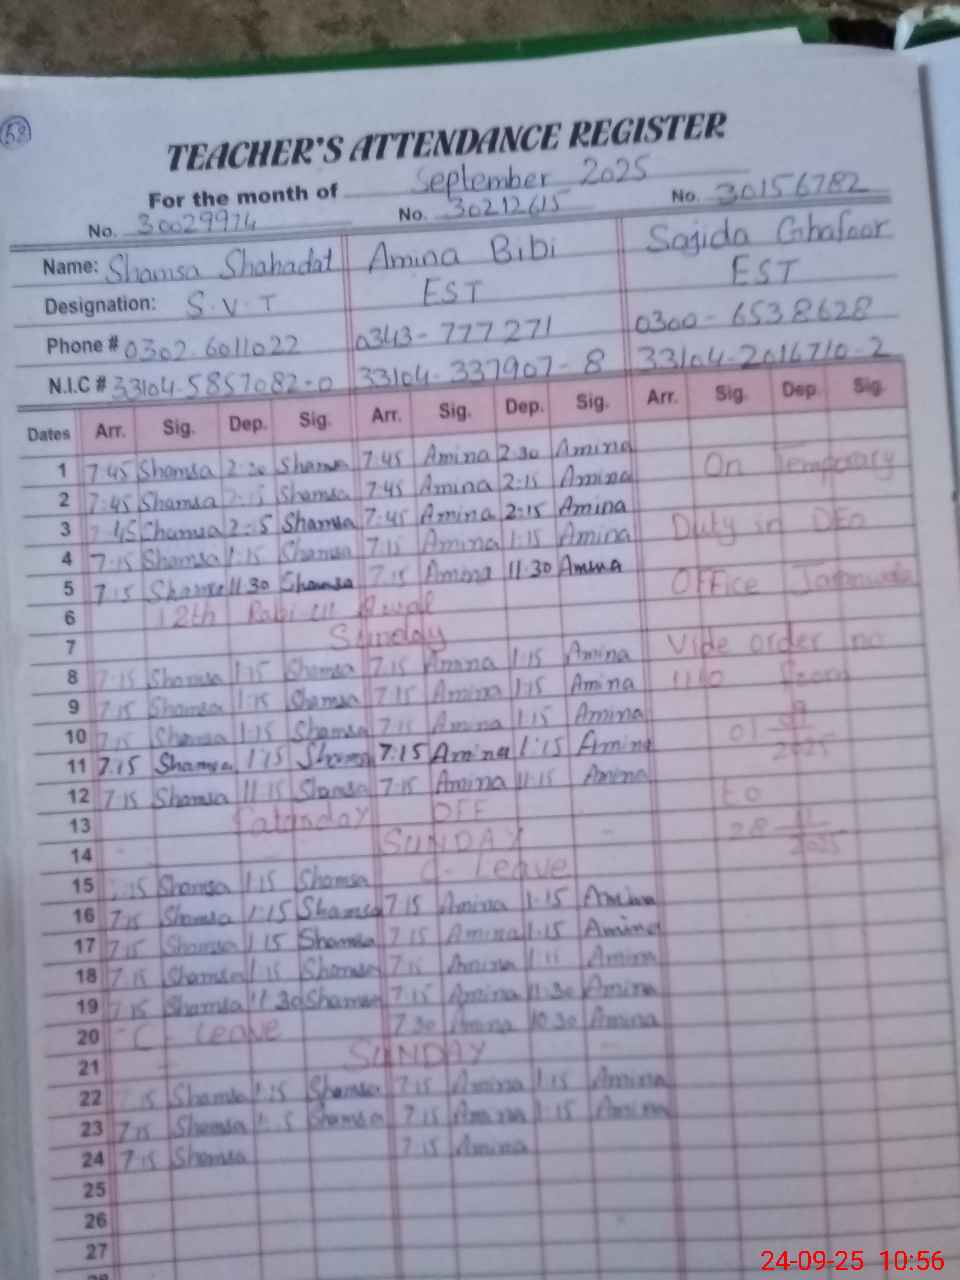 58
TEACHER'S ATTENDANCE REGISTER
For the month of September 2025
No. 30029974 No. 30212615 No. 30156782
Name: Shamsa Shahadat Amina Bibi Sajida Ghafoor
Designation: S.V.T EST EST
Phone # 0302.6011022 0343-777271 0300-6538628
N.I.C # 33104-5857082-0 33104-337907-8 33104-2016710-2
Dates Arr. Sig. Dep. Sig. Arr. Sig. Dep. Sig. Arr. Sig. Dep. Sig.
1 7:45 Shamsa 2:30 Shamsa 7:45 Amina 2:30 Amina On Temporary
2 7:45 Shamsa 2:15 Shamsa 7:45 Amina 2:15 Amina
3 7:45 Shamsa 2:15 Shamsa 7:45 Amina 2:15 Amina Duty in DEO
4 7:15 Shamsa 1:15 Shamsa 7:15 Amina 1:15 Amina
5 7:15 Shamsa 11:30 Shamsa 7:15 Amina 11:30 Amina Office
6 12th Rabi-ul
7 Sunday Vide order no
8 7:15 Shamsa 1:15 Shamsa 7:15 Amina 1:15 Amina
9 7:15 Shamsa 1:15 Shamsa 7:15 Amina 1:15 Amina from
10 7:15 Shamsa 1:15 Shamsa 7:15 Amina 1:15 Amina 01 9
11 7:15 Shamsa 1:15 Shamsa 7:15 Amina 1:15 Amina 2025
12 7:15 Shamsa 11:15 Shamsa 7:15 Amina 11:15 Amina to
13 Saturday OFF
14 SUNDAY 28 2025
15 7:15 Shamsa 1:15 Shamsa C- Leave
16 7:15 Shamsa 1:15 Shamsa 7:15 Amina 1:15 Amina
17 7:15 Shamsa 1:15 Shamsa 7:15 Amina 1:15 Amina
18 7:15 Shamsa 1:15 Shamsa 7:15 Amina 1:15 Amina
19 7:15 Shamsa 11:30 Shamsa 7:15 Amina 11:30 Amina
20 C- Leave 7:30 Amina 10:30 Amina
21 SUNDAY
22 7:15 Shamsa 1:15 Shamsa 7:15 Amina 1:15 Amina
23 7:15 Shamsa 1:15 Shamsa 7:15 Amina 1:15 Amina
24 7:15 Shamsa 7:15 Amina
25
26
27
28
24-09-25 10:56